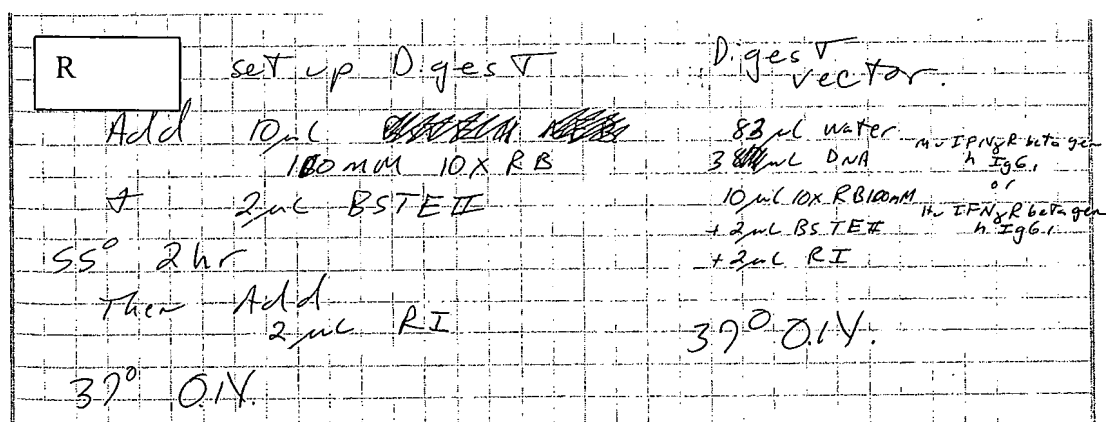 R
set up Digest
Add 10 µL
100 mM 10X RB
+ 2 µL BSTEII
55° 2hr
Then Add
2 µL RI
37° O/N.
Digest
vector.
83 µL water
3 µL DNA
10 µL 10X RB 100mM
+ 2 µL BSTEII
+ 2 µL RI
mu IFNγR beta gen
h IgG1
or
Hu IFNγR beta gen
h IgG1
37° O/N.